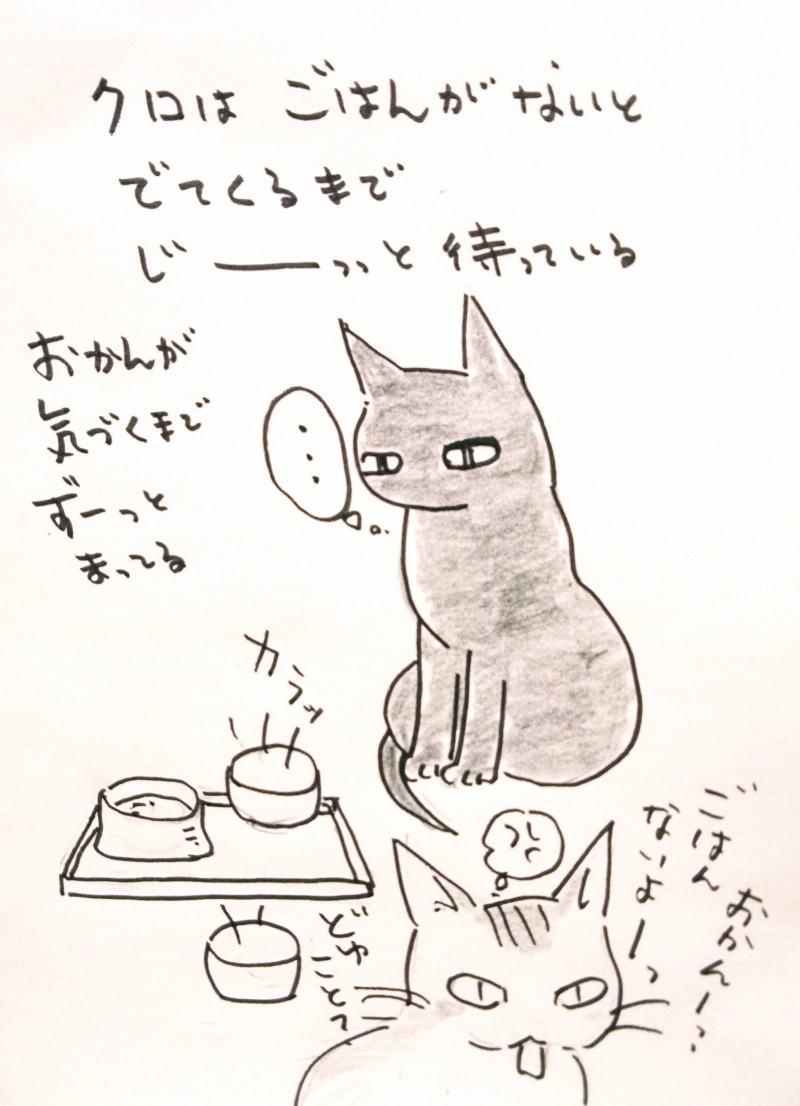 クロは ごはんがないと
でてくるまで
じーーーっっと 待っている
おかんが
気づくまで
ずーっと
まってる
カラッ
ごはん
ないよーっ
おかんーっ
どゆ
ことっ